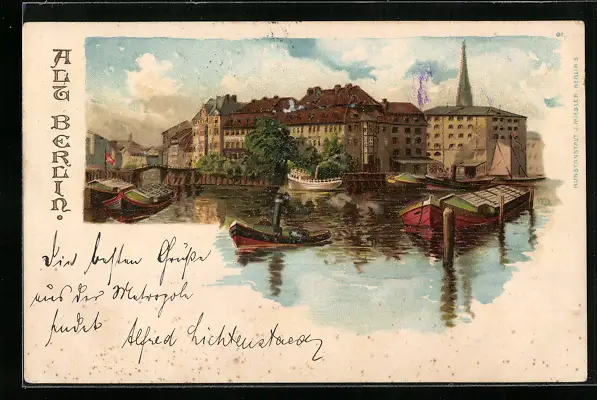 ALT BERLIN.
61
KUNSTANSTALT J. MIESLER, BERLIN S.
Die besten Grüße
aus der Metropole
sendet
Alfred Lichtenstaedt